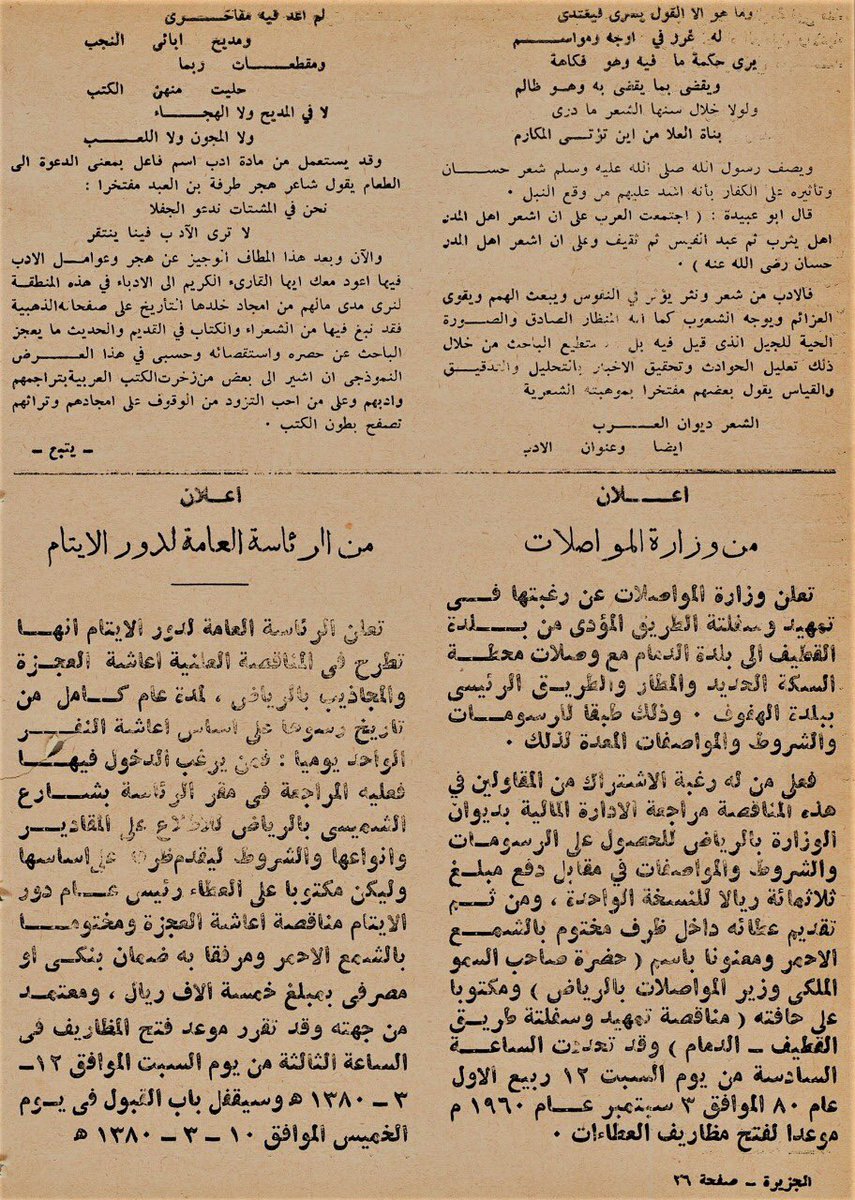 وما هو الا القول يسرى فيغتدى
له غرر في اوجه ومواســـم
يرى حكمة ما فيه وهو فكاهة
ويقضى بما يقضى به وهـو ظالم
ولولا خلال سنها الشعر ما درى
بناة العلا من اين تؤتــى المكارم
ويصف رسول الله صلى الله عليه وسلم شعر حســـان
وتأثيره على الكفار بأنه اشد عليهم من وقع النبل ٠
قال ابو عبيدة : ( اجتمعت العرب على ان اشعر اهل المدر
اهل يثرب ثم عبد القيس ثم ثقيف وعلى ان اشعر اهل المدر
حسان رضى الله عنه ) ٠
فالادب من شعر ونثر يؤثر في النفوس ويبعث الهمم ويقوى
العزائم ويوجه الشعوب كما انه المنظار الصادق والصـــورة
الحية للجيل الذى قيل فيه بل يستطيع الباحث من خلال
ذلك تعليل الحوادث وتحقيق الاخبار بالتحليل والتدقيـــق
والقياس يقول بعضهم مفتخرا بموهبته الشعرية
الشعر ديوان العـــــرب
ايضا وعنوان الادب
لم اعد فيه مفاخـــــرى
ومديح ابائى النجب
ومقطعـــات ربما
حليت منهن الكتب
لا في المديح ولا الهجـــاء
ولا المجون ولا اللعـــب
وقد يستعمل من مادة ادب اسم فاعل بمعنى الدعوة الى
الطعام يقول شاعر هجر طرفة بن العبد مفتخرا :
نحن في المشتات ندعو الجفلا
لا ترى الآدب فينا ينتقر
والآن وبعد هذا المطاف الوجيز عن هجر وعوامـــل الادب
فيها اعود معك ايها القارىء الكريم الى الادباء في هذه المنطقـة
لنرى مدى مالهم من امجاد خلدها التأريخ على صفحاته الذهبية
فقد نبغ فيها من الشعراء والكتاب في القديم والحديث ما يعجز
الباحث عن حصره واستقصائه وحسبى في هذا العـــرض
النموذجى ان اشير الى بعض من زخرت الكتب العربية بتراجمهم
وادبهم وعلى من احب التزود من الوقوف على امجادهم وتراثهم
تصفح بطون الكتب ٠
ـ يتبع ـ
اعـــلان
من وزارة المواصلات
تعلن وزارة المواصلات عن رغبتها فـــى
تمهيد وسفلتة الطريق المؤدى من بـــلدة
القطيف الى بلدة الدمام مع وصلات محطـة
السكة الحديد والمطار والطريـق الرئيسى
ببلدة الهفوف ٠ وذلك طبقا للرسومـــات
والشروط والمواصفات المعدة لذلك ٠
فعلى من له رغبة الاشتراك من المقاولين في
هذه المناقصة مراجعة الادارة المالية بديوان
الوزارة بالرياض للحصول على الرسومات
والشروط والمواصفات في مقابل دفع مبلـغ
ثلاثمائة ريالا للنسخة الواحدة ، ومن ثـــم
تقديم عطائه داخل ظرف مختوم بالشمـــع
الاحمر ومعنونا باسم ( حضرة صاحب السمو
الملكى وزير المواصلات بالرياض ) ومكتوبا
على حافته ( مناقصة تمهيد وسفلتة طريـق
القطيف ـ الدمام ) وقد تحددت الساعـــة
السادسة من يوم السبت ١٢ ربيع الاول
عام ٨٠ الموافق ٣ سبتمبر عـــام ١٩٦٠ م
موعدا لفتح مظاريف العطاءات ٠
اعـــلان
من الرئاسة العامة لدور الايتام
تعلن الرئاسة العامة لدور الايتام انهـــا
تطرح فى المناقصة العلنية اعاشة العجـزة
والمجاذيب بالرياض ، لمدة عام كـــامل من
تاريخ رسوها على اساس اعاشة النفـــر
الواحد يوميا : فمن يرغب الدخول فيهـــا
فعليه المراجعة فى مقر الرئاسة بشـــارع
الشميسى بالرياض للاطلاع على المقاديـــر
وانواعها والشروط ليقدم ظرف على اساسها
وليكن مكتوبا على العطاء رئيس عـــام دور
الايتام مناقصة اعاشة العجزة ومختومـــا
بالشمع الاحمر ومرفقا به ضمان بنكـى او
مصرفى بمبلغ خمسة الاف ريال ، ومعتمـد
من جهته وقد تقرر موعد فتح المظاريف فى
الساعة الثالثة من يوم السبت الموافق ١٢ـ
٣ ـ ١٣٨٠ هـ وسيقفل باب القبول فى يـوم
الخميس الموافق ١٠ ـ ٣ ـ ١٣٨٠ هـ
الجزيرة ـ صفحة ٢٦